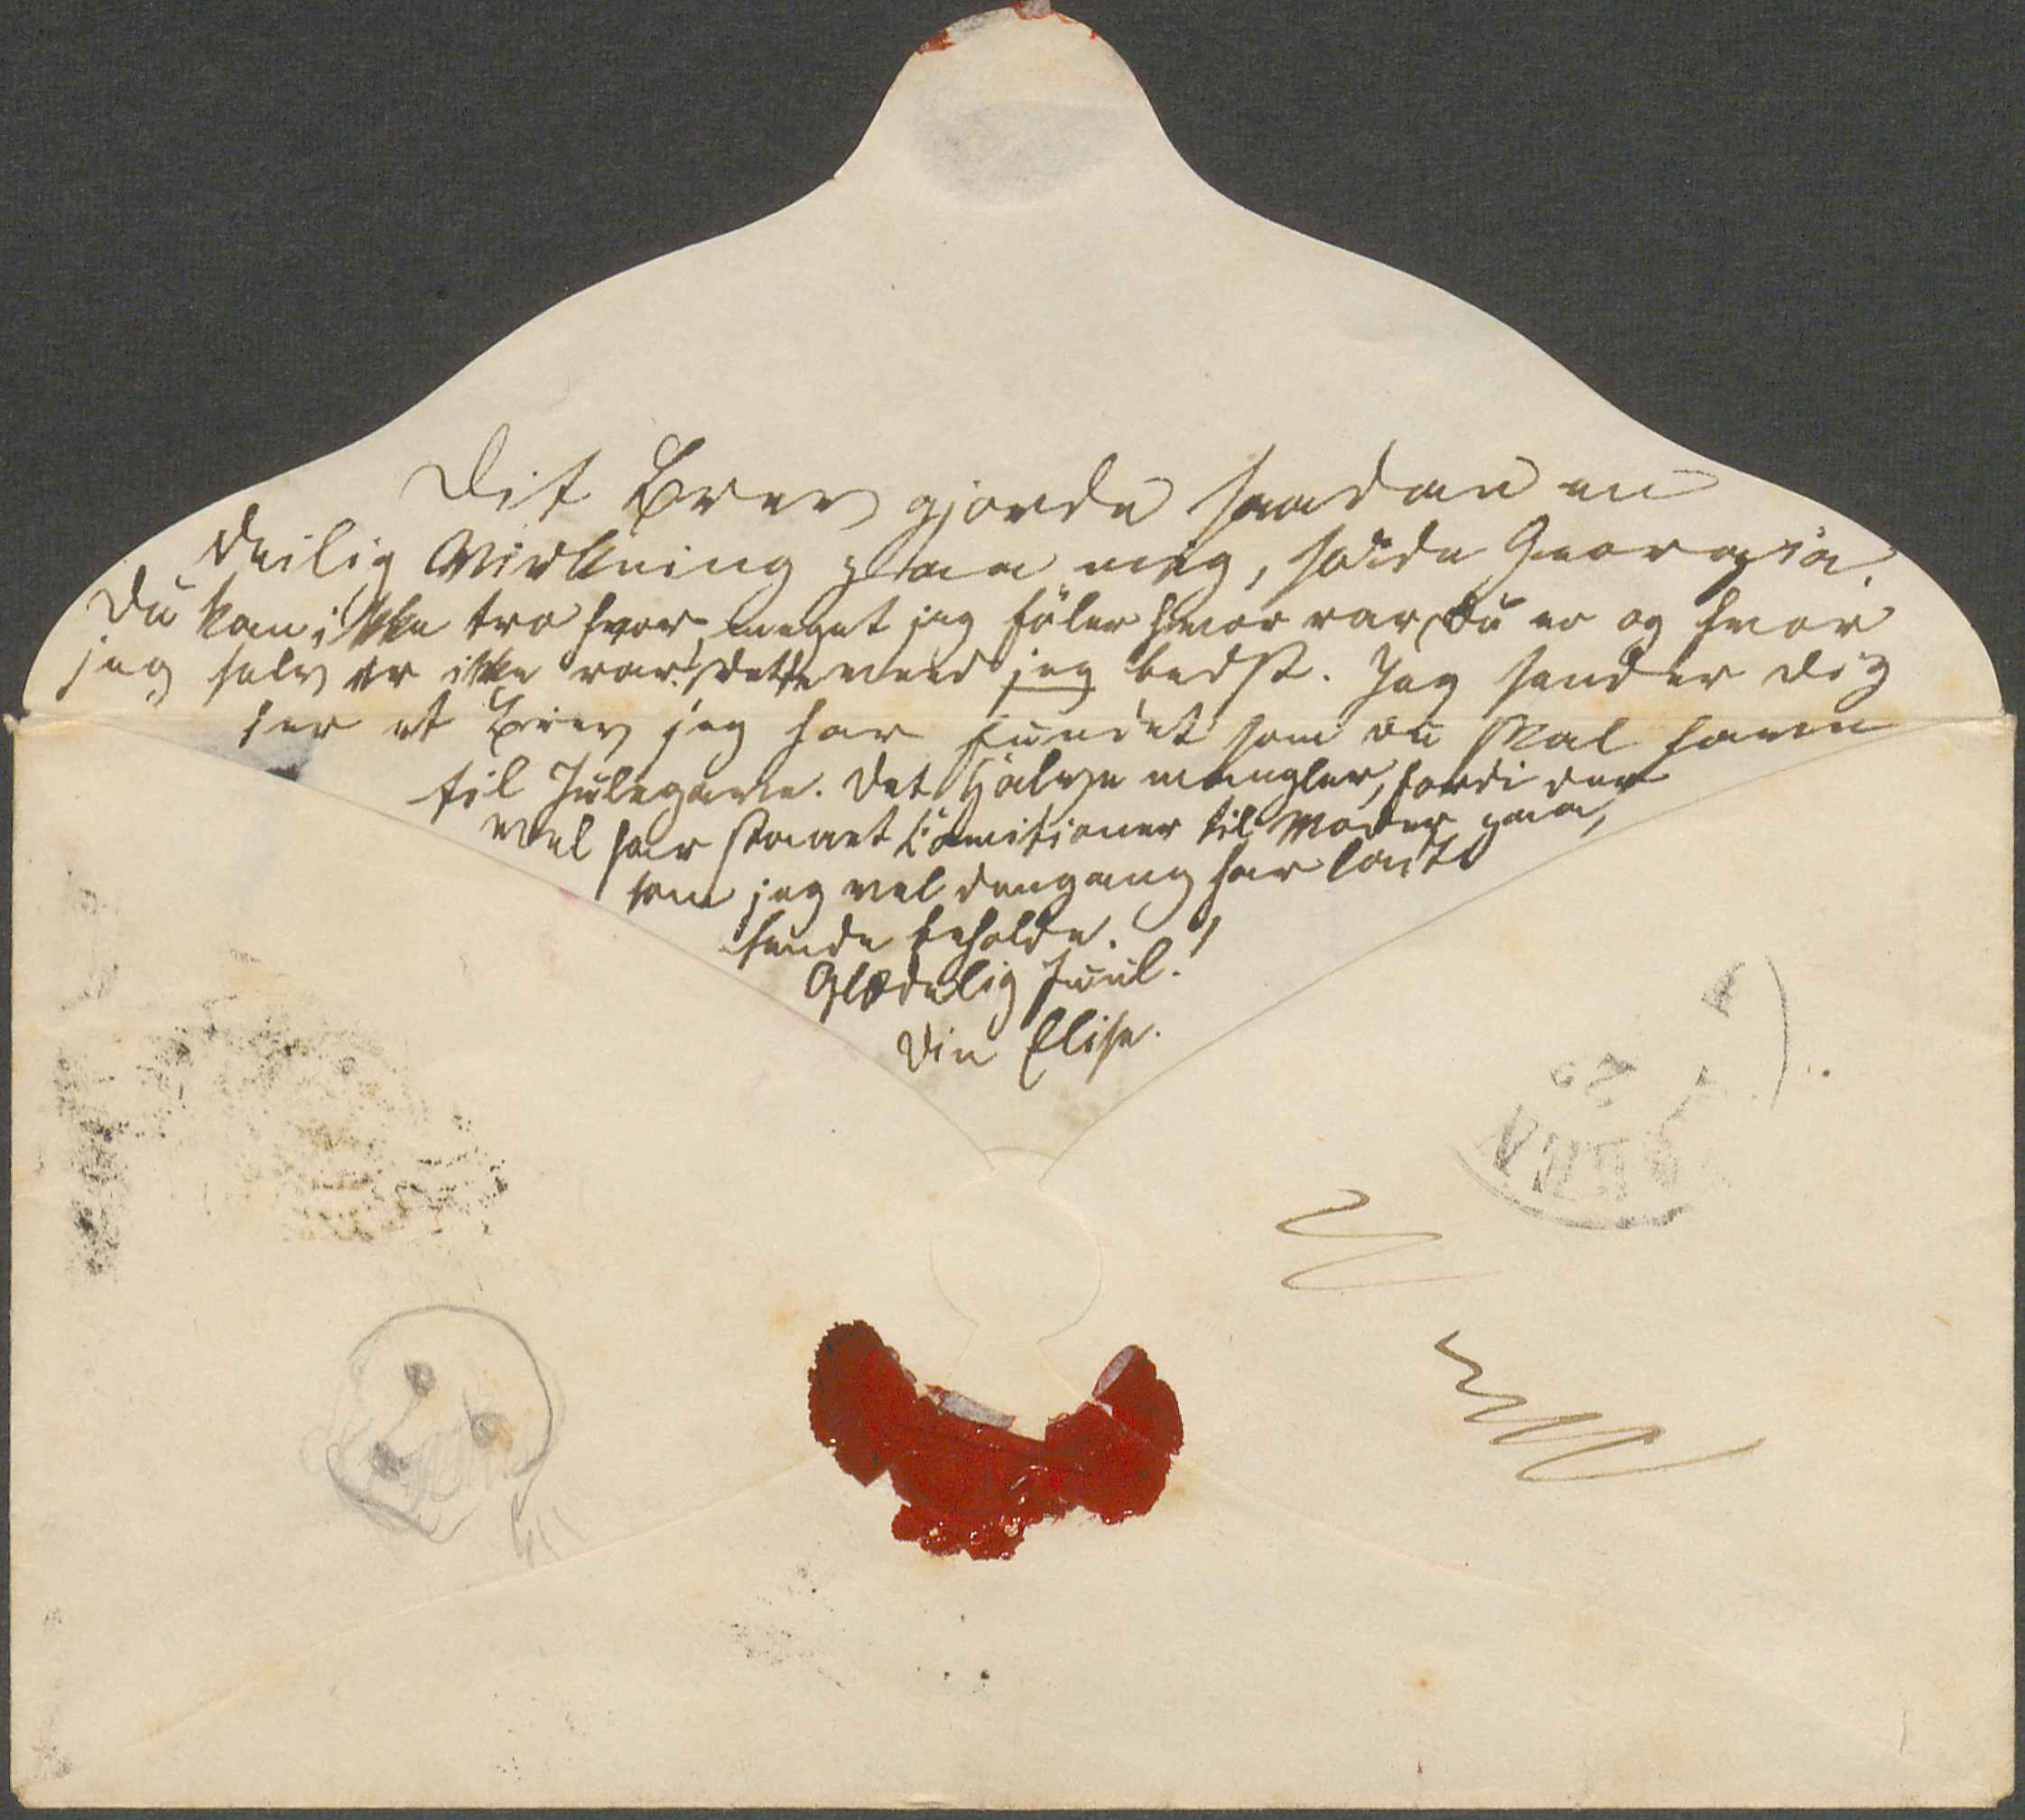 Dit Brev gjorde saadan en
deilig Virkning paa mig, søde Georgia.
Du kan ikke tro hvor meget jeg föler hvor rar Du er og hvor
jeg selv er ikke rar! dette veed jeg bedst. Jeg sender dig
her et Brev jeg har fundet som du skal have
til Julegave. Det Halve mangler, fordi der
vel har staaet Comisioner til Moder paa,
som jeg vel dengang har ladt
hende beholde.
Glædelig Juul!
Din Elise.